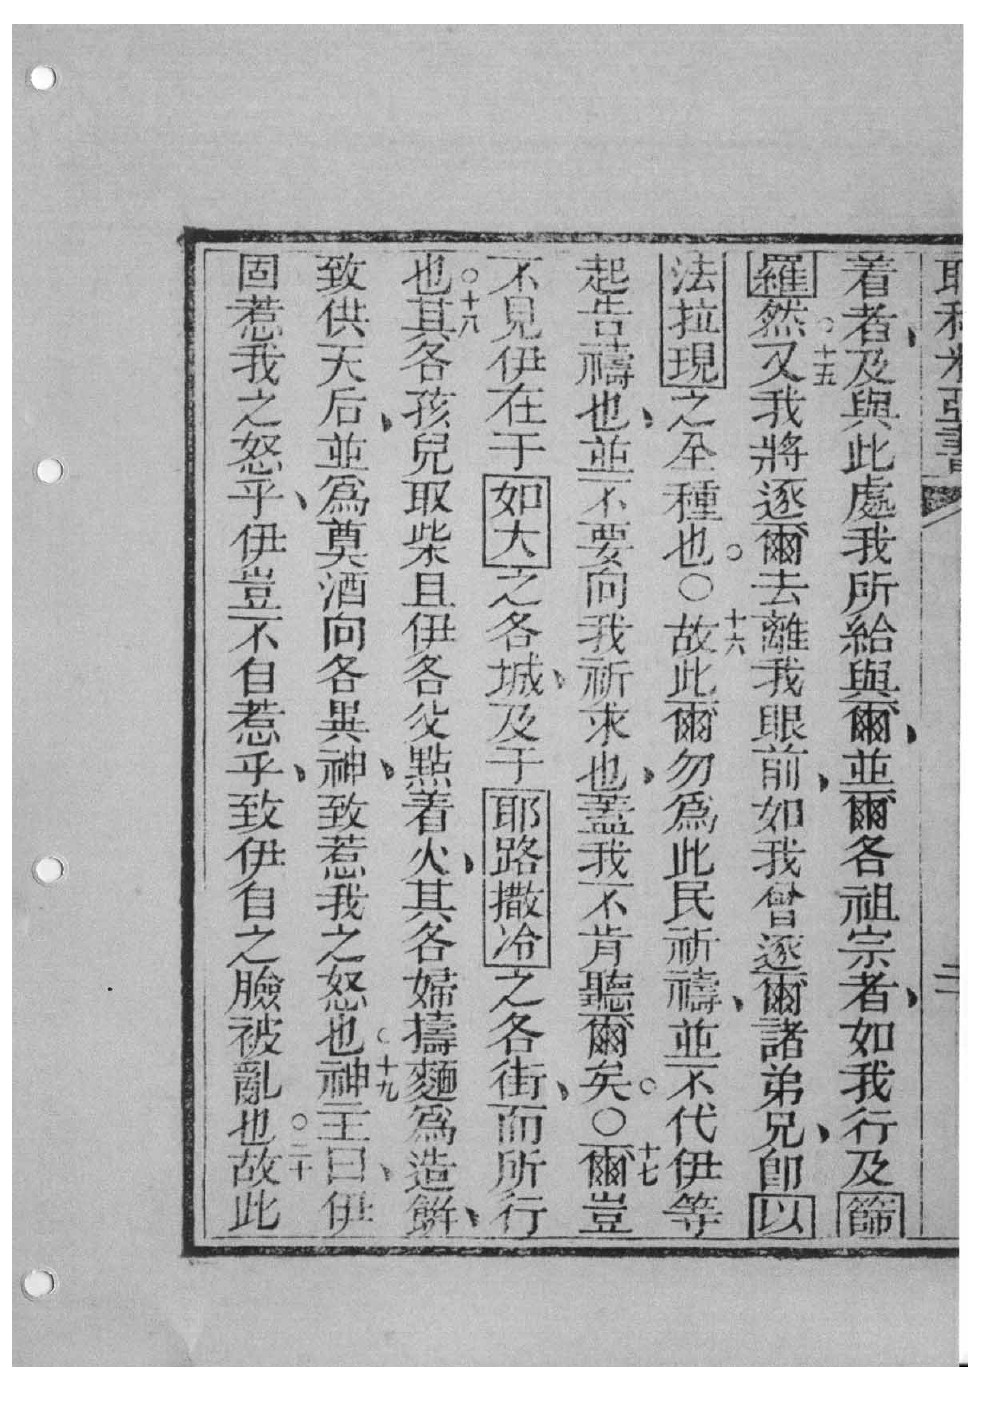 耶利米亞書 二
着者、及與此處我所給與爾、並爾各祖宗者、如我行及篩
羅然。十五又我將逐爾去離我眼前、如我曾逐爾諸弟兄、即以
法拉現之全種也。○十六故此爾勿為此民祈禱、並不代伊等
起告禱也、並不要向我祈求也、蓋我不肯聽爾矣。○十七爾豈
不見伊在于如大之各城、及于耶路撒冷之各街、而所行
也。十八其各孩兒取柴且伊各父點着火、其各婦擣麵為造餅、
致供天后、並為奠酒向各異神、致惹我之怒也。十九神主曰、伊
固惹我之怒乎、伊豈不自惹乎、致伊自之臉被亂也。二十故此